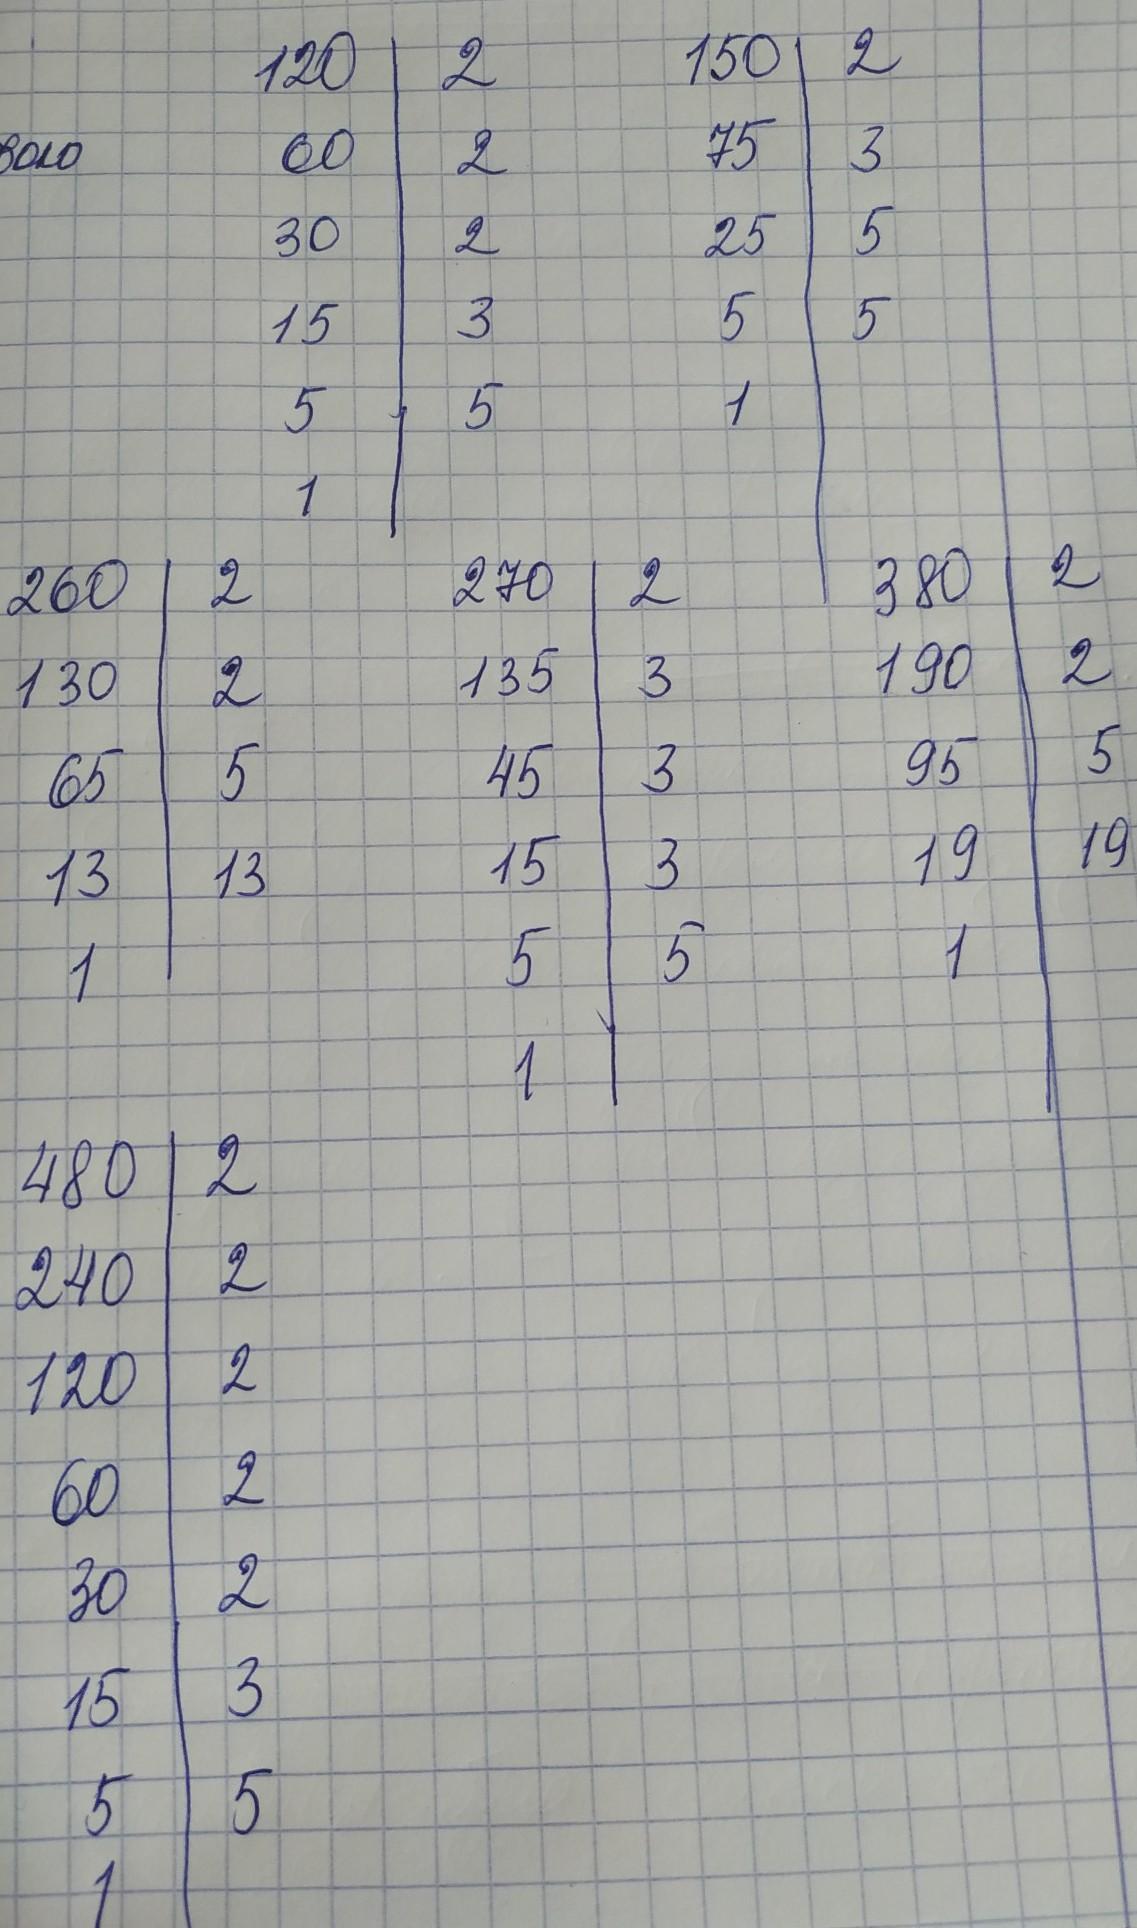 120 | 2 150 | 2
60 | 2 75 | 3
30 | 2 25 | 5
15 | 3 5 | 5
5 | 5 1 |
1 |
260 | 2 270 | 2 380 | 2
130 | 2 135 | 3 190 | 2
65 | 5 45 | 3 95 | 5
13 | 13 15 | 3 19 | 19
1 | 5 | 5 1 |
1 |
480 | 2
240 | 2
120 | 2
60 | 2
30 | 2
15 | 3
5 | 5
1 |